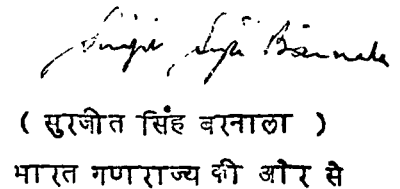 Surjit Singh Barnala
( सुरजीत सिंह बरनाला )
भारत गणराज्य की ओर से